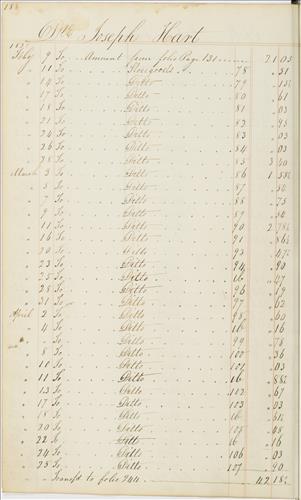 Joseph Hart
Feby 9 To Amount from folio Page 131 21 03
" 11 To 78 " 31
" 14 To Ditto 79
" 17 To Ditto 80 " 61
" 18 To Ditto 81 " 03
" 21 To Ditto 82 " 95
" 24 To Ditto 83 " 03
" 26 To Ditto 84 " 03
" 28 To Ditto 85 3
March 3 To Ditto 86 1
" 5 To Ditto 87
" 7 To Ditto 88 " 75
" 9 To Ditto 89
" 11 To Ditto 90 2
" 16 To Ditto 91
" 20 To Ditto 93
" 23 To Ditto 94 " 90
" 25 To Ditto 16
" 28 To Ditto 96 " 19
" 31 To Ditto 97 " 62
April 2 To Ditto 98
" 4 To Ditto 16 " 16
" To Ditto 99 " 78
" 8 To Ditto 100 " 36
" 10 To Ditto 101 " 03
" 11 To Ditto 16
" 13 To Ditto 102 " 67
" 17 To Ditto 103 " 03
" 18 To Ditto 16
" 20 To Ditto 48
" 22 To Ditto 16 " 16
" 24 To Ditto 106 " 03
" 25 To Ditto 107 " 90
" Transfd to folio 244 42